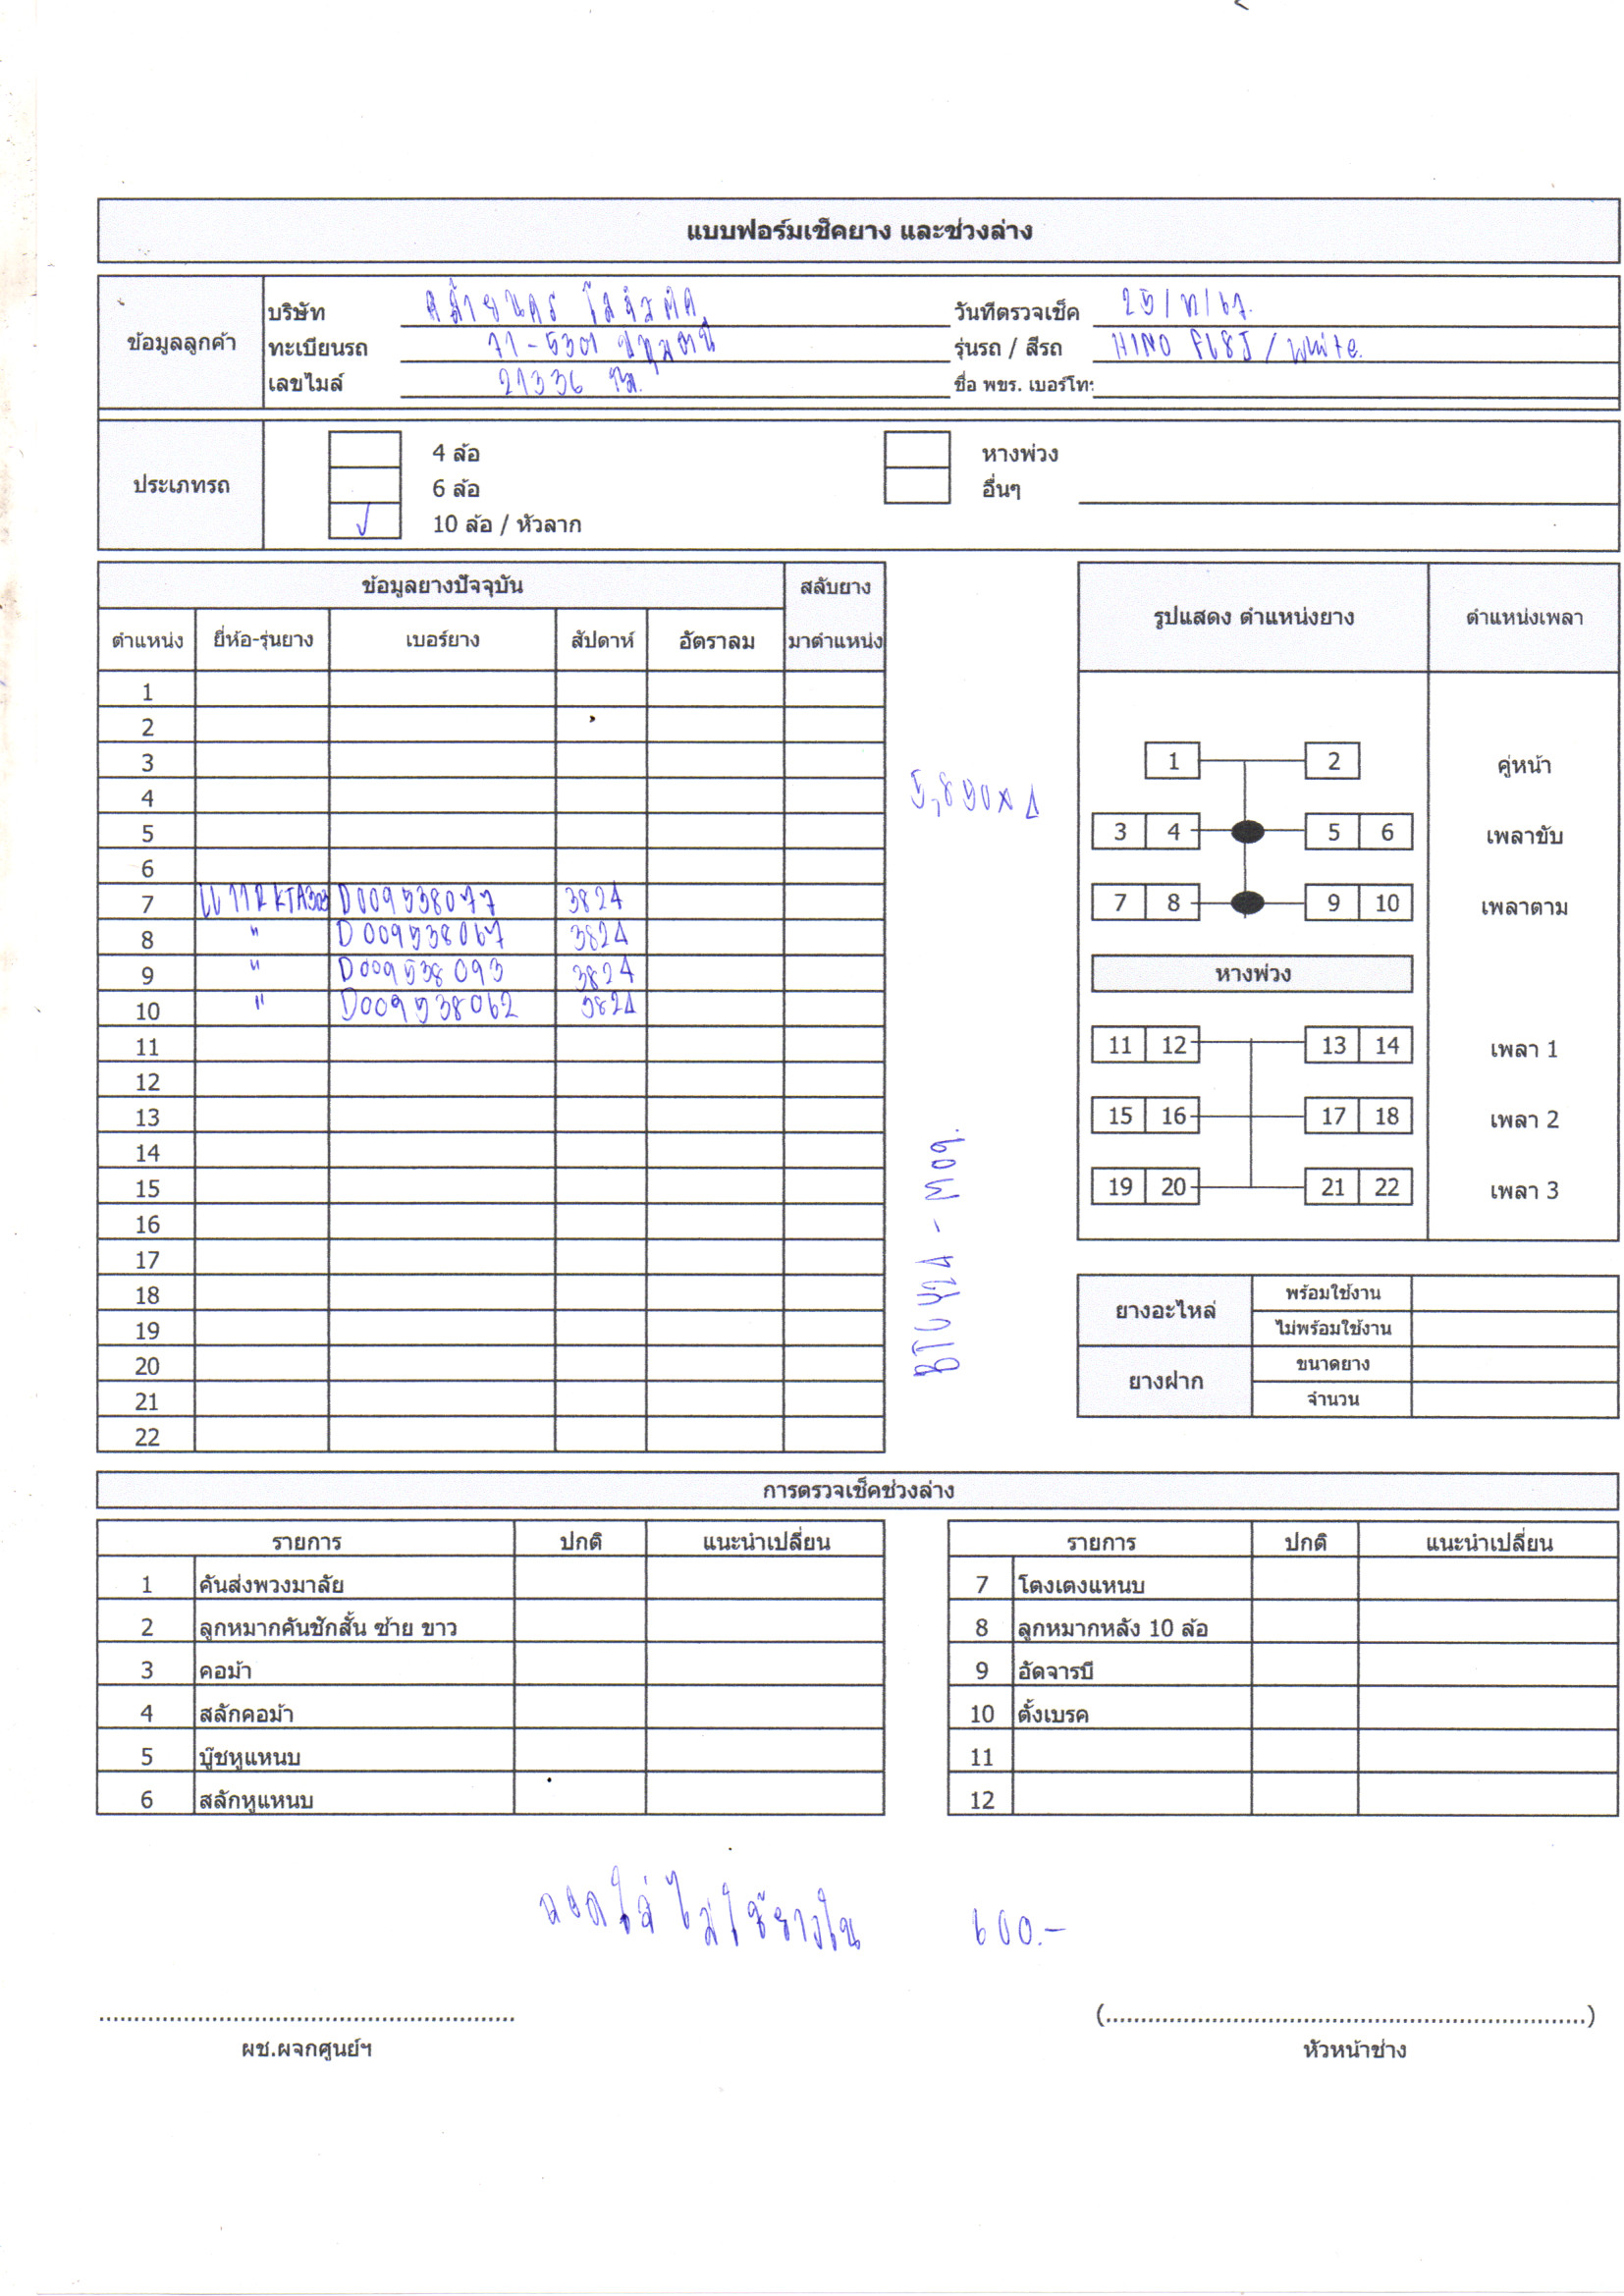 แบบฟอร์มเช็คยาง และช่วงล่าง
ข้อมูลลูกค้า
บริษัท
วันที่ตรวจเช็ค 25/
ทะเบียนรถ 71-5301 ปทุมธานี
รุ่นรถ / สีรถ HINO FL8J / White.
เลขไมล์ 21336 กม.
ชื่อ พขร. เบอร์โทร
ประเภทรถ
4 ล้อ
หางพ่วง
6 ล้อ
อื่นๆ
√ 10 ล้อ / หัวลาก
ข้อมูลยางปัจจุบัน สลับยาง
ตำแหน่ง ยี่ห้อ-รุ่นยาง เบอร์ยาง สัปดาห์ อัตราลม มาตำแหน่ง
1
2
3
4
5
6
7 KTA303 D009538077 3824
8 " D009538067 3824
9 " D009538093 3824
10 " D009538062 3824
11
12
13
14
15
16
17
18
19
20
21
22
5,890x4
รูปแสดง ตำแหน่งยาง ตำแหน่งเพลา
1 2 คู่หน้า
3 4 5 6 เพลาขับ
7 8 9 10 เพลาตาม
หางพ่วง
11 12 13 14 เพลา 1
15 16 17 18 เพลา 2
19 20 21 22 เพลา 3
ยางอะไหล่ พร้อมใช้งาน
ไม่พร้อมใช้งาน
ยางฝาก ขนาดยาง
จำนวน
การตรวจเช็คช่วงล่าง
รายการ ปกติ แนะนำเปลี่ยน
1 คันส่งพวงมาลัย
2 ลูกหมากคันชักสั้น ซ้าย ขาว
3 คอม้า
4 สลักคอม้า
5 บู๊ชหูแหนบ
6 สลักหูแหนบ
รายการ ปกติ แนะนำเปลี่ยน
7 โตงเตงแหนบ
8 ลูกหมากหลัง 10 ล้อ
9 อัดจารบี
10 ตั้งเบรค
11
12
ถอดใส่ไม่ใช้ยางใน 600.-
ผช.ผจกศูนย์ฯ
(..........)
หัวหน้าช่าง